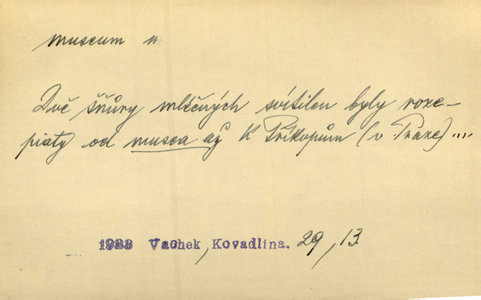 museum n
Dvě šňůry mléčných svítilen byly roze-
piaty od musea až K Příkopům (v Praze)...
1923 Vachek, Kovadlina. 29, 13.